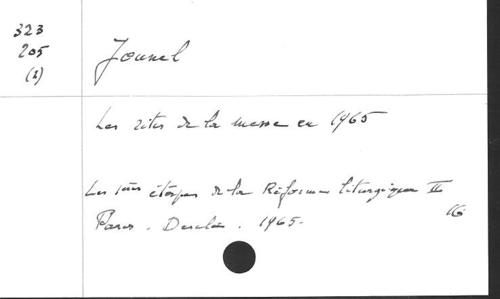 323
205
(2)
Jounel
Les rites de la messe en 1965
Les 1ères étapes de la Réforme liturgique II
Paris. Desclée. 1965.
16